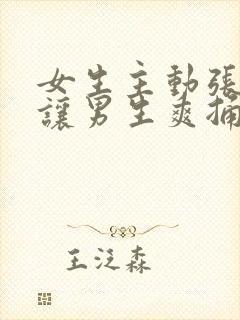 女生主動張
讓男生爽捅
王泛森